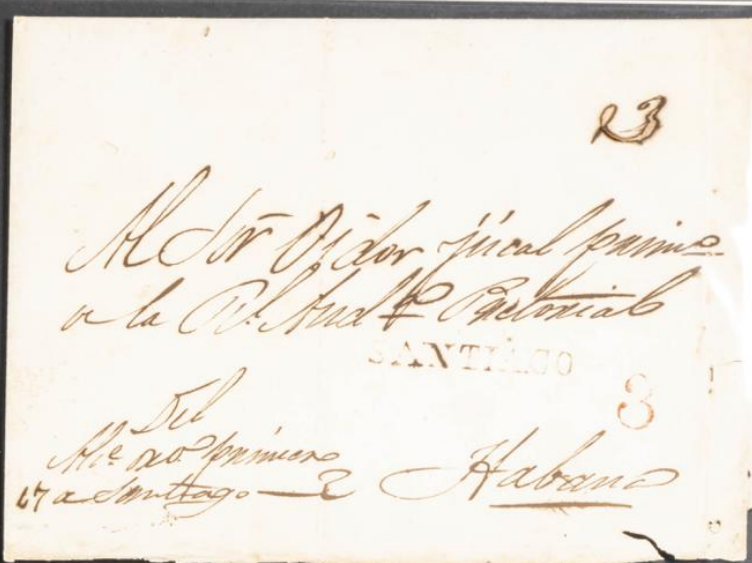 3
Al Sor Oidor fiscal primo
de la Rl. Auda Pretorial
SANTIAGO
3
Del
Alce. ordo. primero
de Santiago
Habana